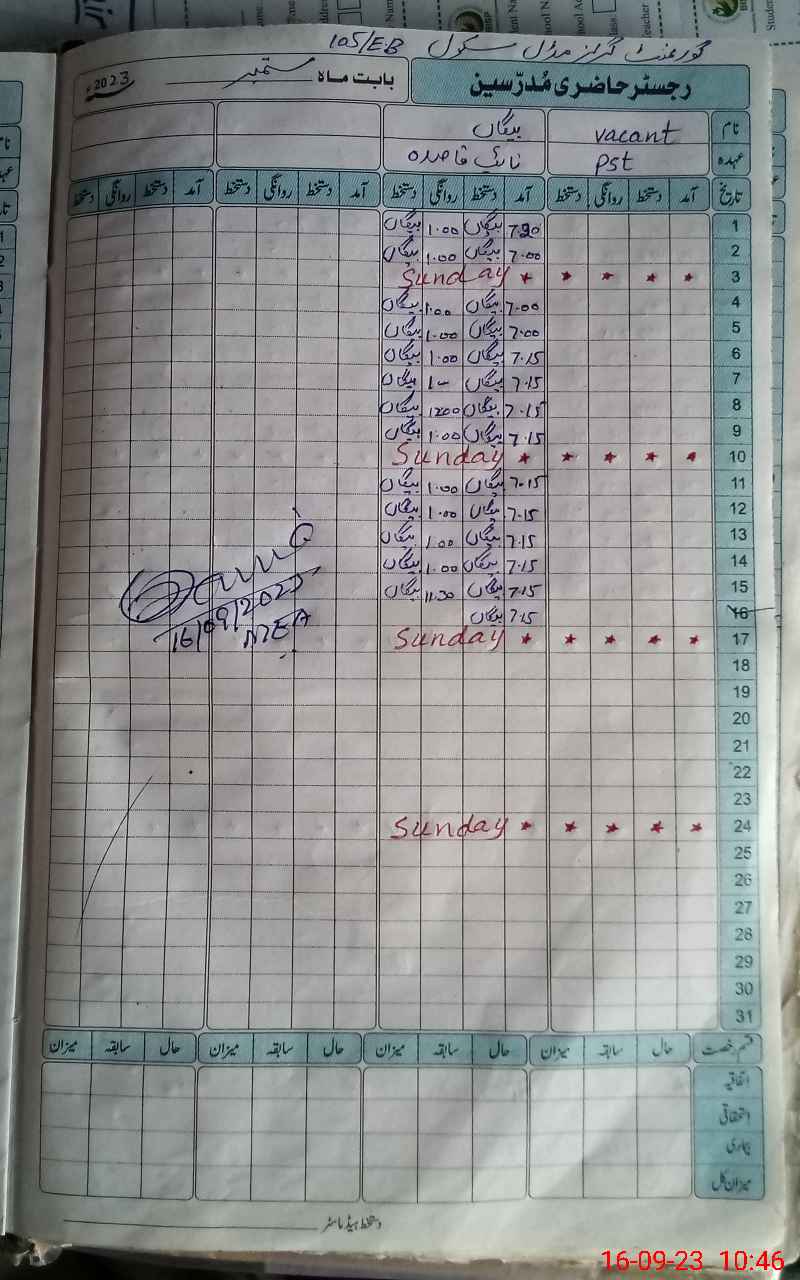 گورنمنٹ گرلز مڈل سکول 105/EB
رجسٹر حاضری مُدرّسین بابت ماہ ستمبر 2023ء
نام vacant بیگاں
عہدہ Pst نائب قاصدہ
تاریخ آمد دستخط روانگی دستخط آمد دستخط روانگی دستخط آمد دستخط روانگی دستخط آمد دستخط روانگی دستخط
1 بیگاں 1.00 بیگاں
2 7.00 بیگاں 1.00 بیگاں
3 Sunday
4 7.00 بیگاں 1.00 بیگاں
5 7.00 بیگاں 1.00 بیگاں
6 7.15 بیگاں 1.00 بیگاں
7 7.15 بیگاں بیگاں
8 7.15 بیگاں 1200 بیگاں
9 7.15 بیگاں 1.00 بیگاں
10 Sunday
11 7.15 بیگاں 1.00 بیگاں
12 7.15 بیگاں 1.00 بیگاں
13 7.15 بیگاں 1.00 بیگاں
14 7.15 بیگاں 1.00 بیگاں
15 7.15 بیگاں 11.30 بیگاں
16 7.15 بیگاں
16/09/2023
MEA
17 Sunday
18
19
20
21
22
23
24 Sunday
25
26
27
28
29
30
31
قسم رخصت حال سابقہ میزان حال سابقہ میزان حال سابقہ میزان حال سابقہ میزان
اتفاقیہ
استحقاقی
بیماری
میزان کل
دستخط ہیڈ ماسٹر
16-09-23 10:46